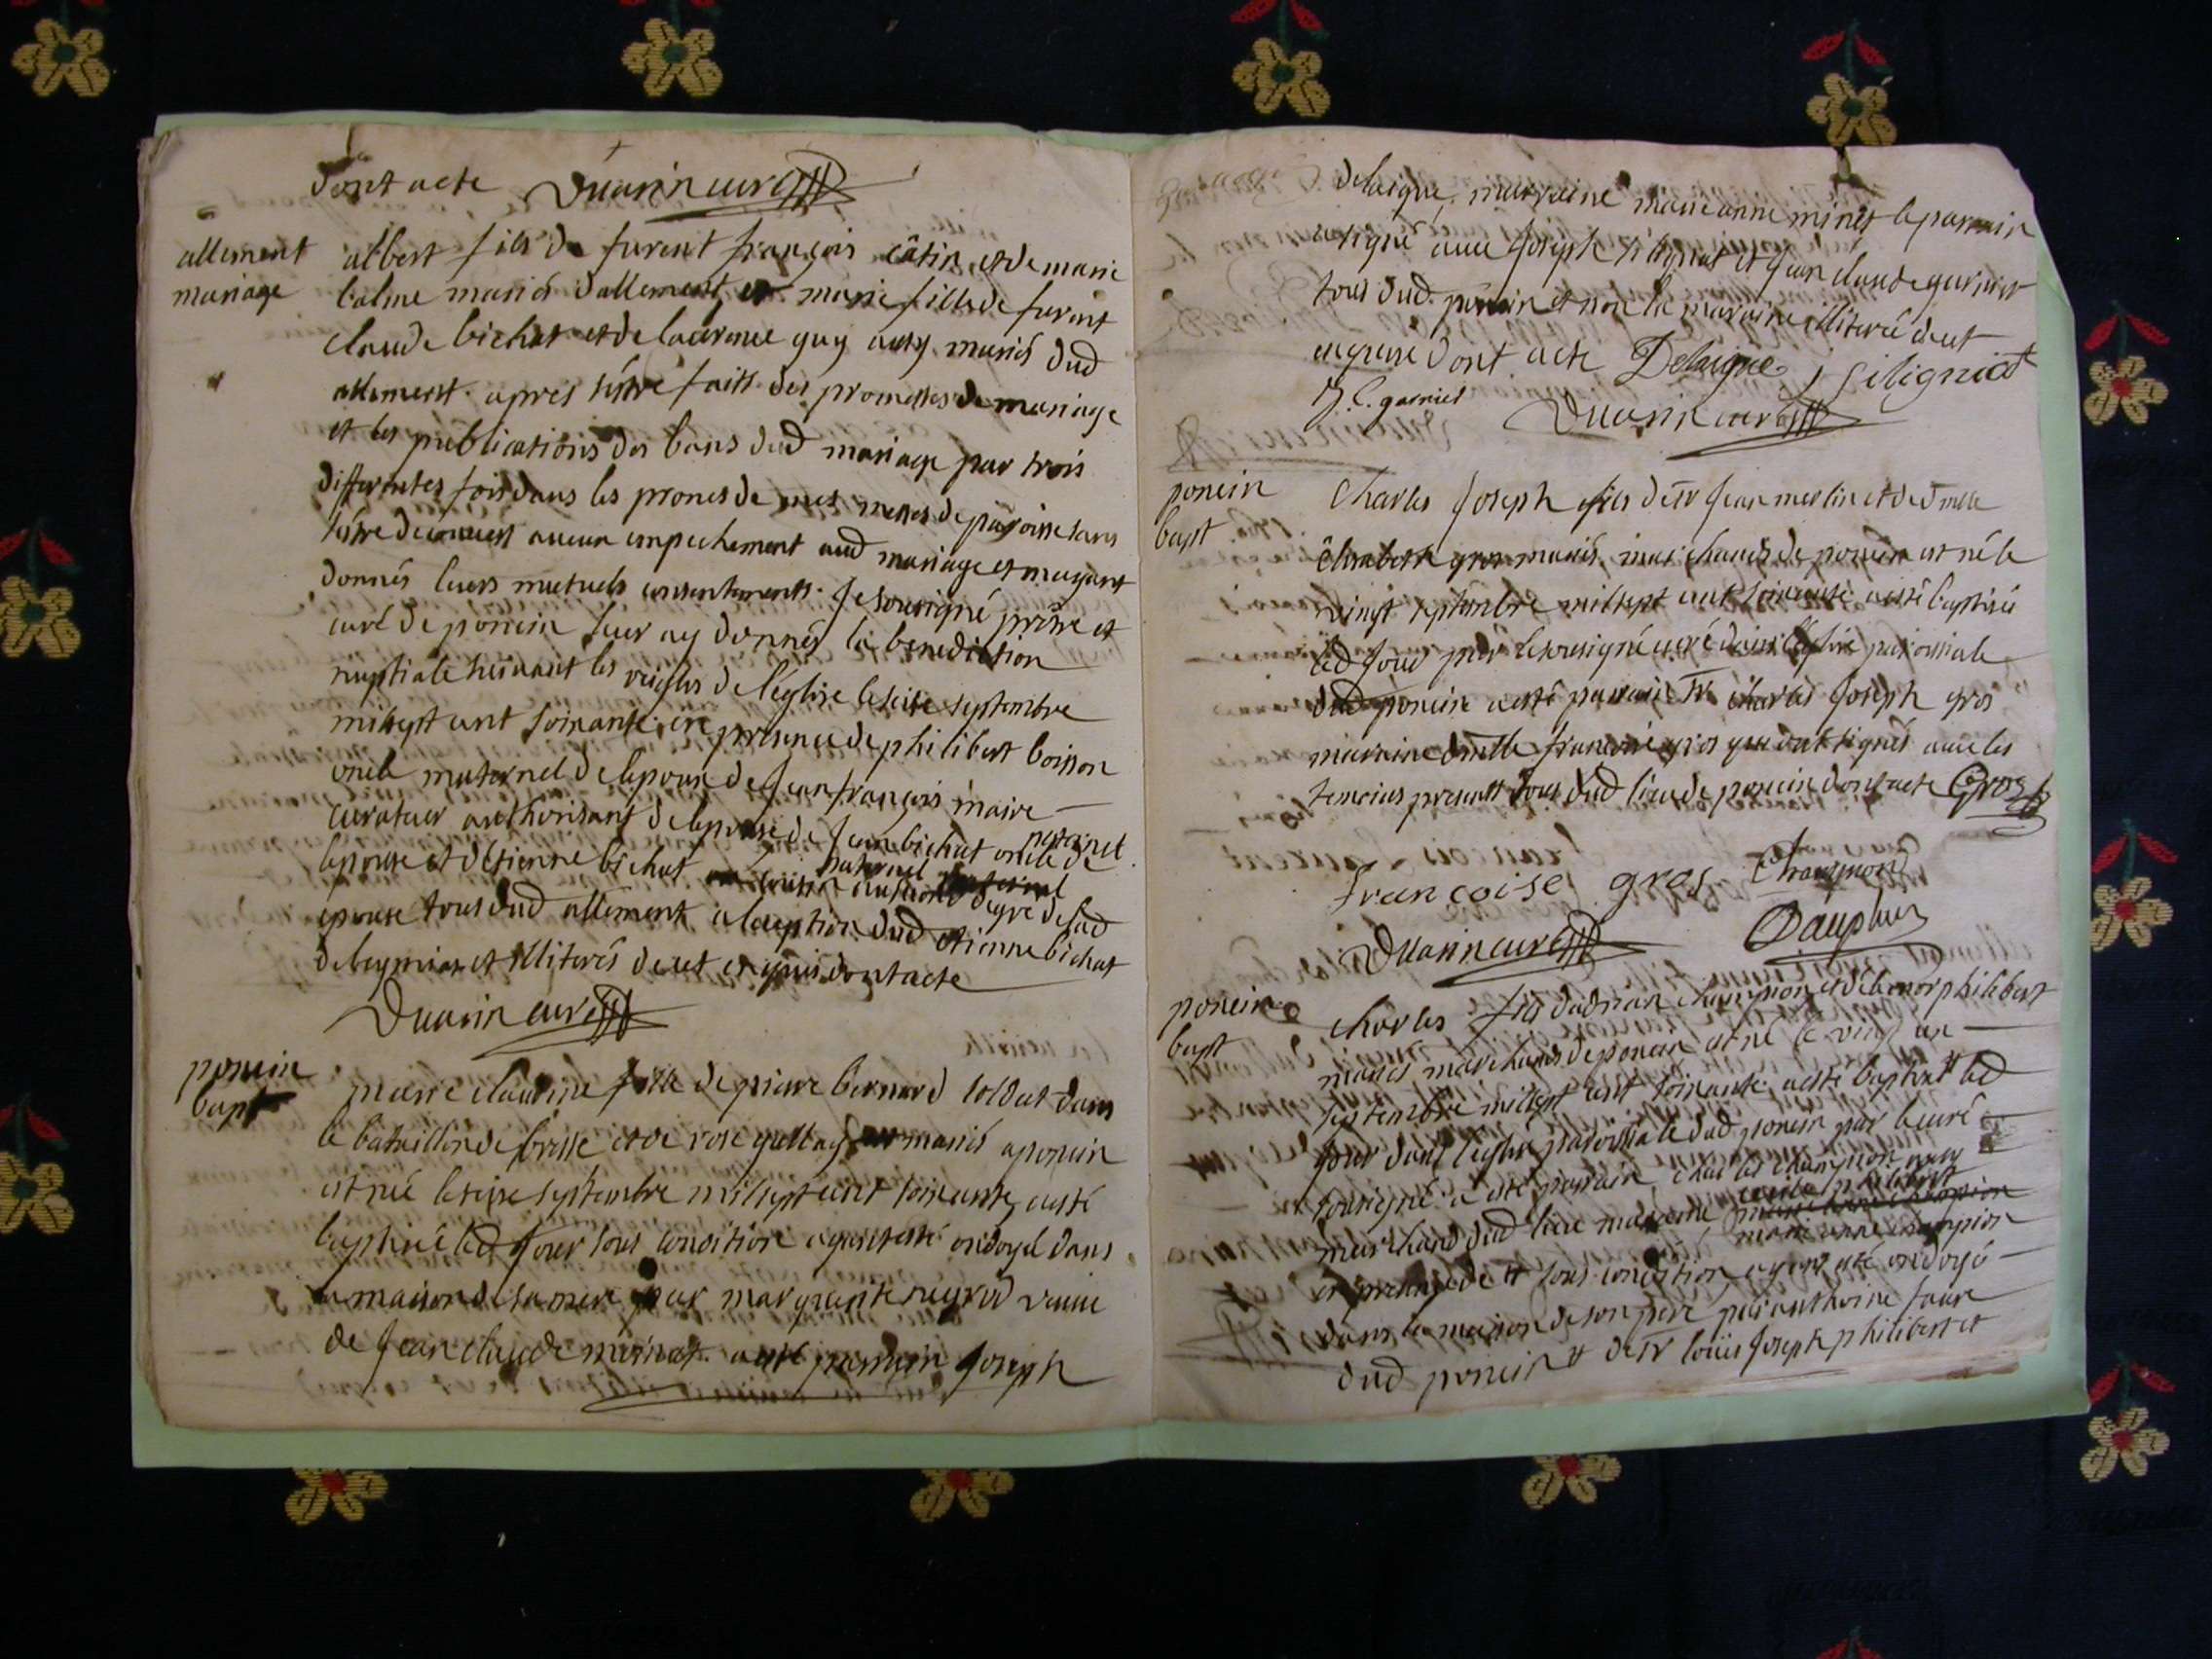 dont acte Duarin curé
allement
mariage
albert fils de furent françois câtin et de marie
balme mariés dallement et marie fille de furent
claude bichat et de laurence guy aussy mariés dud
allement. apres sêstre faitt des promesses de mariage
et les publications des bans dud mariage par trois
differentes fois dans les prones de mes messes de paroisse sans
sêstre découvert aucun empechement aud mariage et mayant
donnés leurs mutuels consentements. Je sousigné prêtre et
curé de poncin leur ay donnés la benediction
nuptiale suivant les reigles de l'église le seize septembre
mil sept cent soixante en presence de philibert boisson
oncle maternel de lepoux de Jean françois maire
curateur authorisant de lepouse de Jean bichat oncle paternel de
lepouse et détienne bichat cousin paternel au second degré de lad
épouse tous dud allement a lexeption dud étienne bichat
de leymiat et illiterés de cet enquis dont acte
Duarin curé
poncin
bapt
pierre claudine fille de pierre bernard soldat dans
le bataillion de bresse et de rose mariés a poncin
est née le seize septembre mil sept cent soixante, a esté
baptisée led Jour sous condition ayant esté ondoyé dans
la maison de sa mere par margueritte veuve
de Jean claude a esté parrain Joseph
delaigue, marraine marie anne minet le parrain
a signé avec Joseph siligniat et Jean claude garnier
tous dud poncin et non la maraine illiterée de cet
enquise dont acte Delaigue J Siligniat
J. C. garnier
Duarin curé
poncin
bapt
Charles Joseph fils de sr Jean merlin et de dmlle
élisabeth gros mariés marchands de poncin est né le
vingt septembre mil sept cent soixante a esté baptisé
led Jour par le sousigné curé dans léglise paroissiale
dud poncin a esté parrain sr charles Joseph gros
maraine dmlle françoise gros qui ont signés avec les
temoins presents tous dud lieu de poncin dont acte Gros
francoise gros
Duarin curé Dauphin
poncin
bapt
charles fils dadrian champion et déleonor philibert
mariés marchands de poncin est né le vingt un
septembre mil sept cent soixante a esté baptisé led
Jour dans léglise paroissiale dud poncin par le curé
sousigné a esté parrain charles champion
marchand dud lieu maraine cecile philibert
en presence de sous condition ayant esté ondoyé marie anne champion
dans la maison de son pere par anthoine faure
dud poncin de sr loüis Joseph philibert et